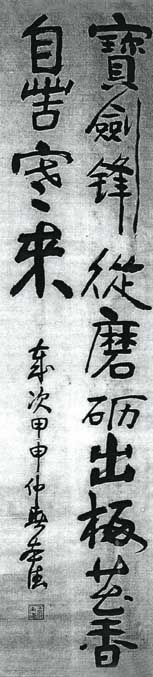 寶劍鋒從磨砺出梅花香
自苦寒來
歲次甲申仲